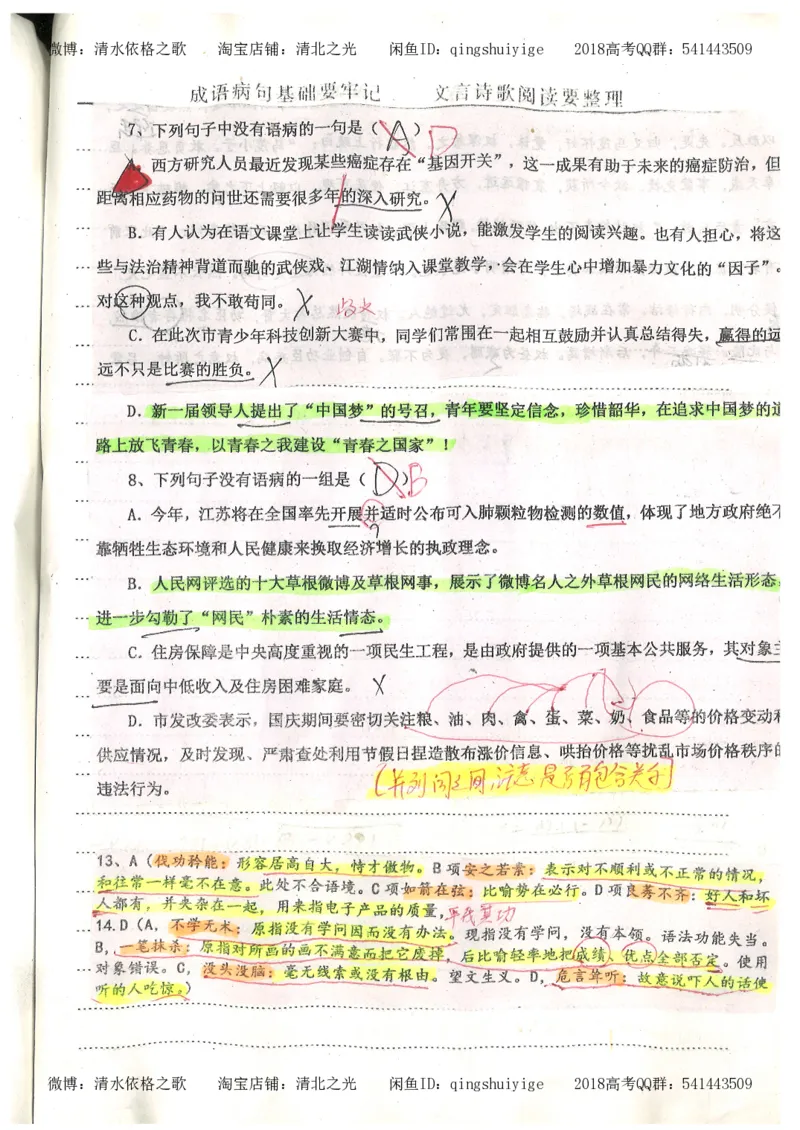 微博：清水依格之歌 淘宝店铺：清北之光 闲鱼ID：qingshuiyige 2018高考QQ群：541443509
成语病句基础要牢记 文言诗歌阅读要整理
7、下列句子中没有语病的一句是（A）D
A．西方研究人员最近发现某些癌症存在“基因开关”，这一成果有助于未来的癌症防治，但
距离相应药物的问世还需要很多年的深入研究。X
B．有人认为在语文课堂上让学生读读武侠小说，能激发学生的阅读兴趣。也有人担心，将这
些与法治精神背道而驰的武侠戏、江湖情纳入课堂教学，会在学生心中增加暴力文化的“因子”。
对这种观点，我不敢苟同。X 歧义
C．在此次市青少年科技创新大赛中，同学们常围在一起相互鼓励并认真总结得失，赢得的远
远不只是比赛的胜负。X
D．新一届领导人提出了“中国梦”的号召，青年要坚定信念，珍惜韶华，在追求中国梦的道
路上放飞青春，以青春之我建设“青春之国家”！
8、下列句子没有语病的一组是（D）B
A．今年，江苏将在全国率先开展并适时公布可入肺颗粒物检测的数值，体现了地方政府绝不
靠牺牲生态环境和人民健康来换取经济增长的执政理念。
B．人民网评选的十大草根微博及草根网事，展示了微博名人之外草根网民的网络生活形态，
进一步勾勒了“网民”朴素的生活情态。
C．住房保障是中央高度重视的一项民生工程，是由政府提供的一项基本公共服务，其对象主
要是面向中低收入及住房困难家庭。X
D．市发改委表示，国庆期间要密切关注粮、油、肉、禽、蛋、菜、奶、食品等的价格变动和
供应情况，及时发现、严肃查处利用节假日捏造散布涨价信息、哄抬价格等扰乱市场价格秩序的
违法行为。
[并列词之间，注意是否有包含关系]
13、A（伐功矜能：形容居高自大，恃才傲物。B项安之若素：表示对不顺利或不正常的情况，
和往常一样毫不在意。此处不合语境。C项如箭在弦：比喻势在必行。D项良莠不齐：好人和坏
人都有，并夹杂在一起，用来指电子产品的质量，
14.D（A，不学无术：原指没有学问因而没有办法。现指没有学问，没有本领。语法功能失当。
B，一笔抹杀：原指对所画的画不满意而把它废掉，后比喻轻率地把成绩、优点全部否定。使用
对象错误。C，没头没脑：毫无线索或没有根由。望文生义。D，危言耸听：故意说吓人的话使
听的人吃惊。）
微博：清水依格之歌 淘宝店铺：清北之光 闲鱼ID：qingshuiyige 2018高考QQ群：541443509